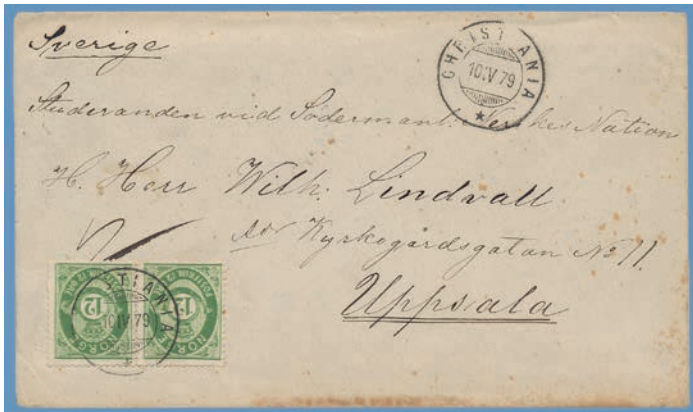 Sverige
CHRISTIANIA
10 IV 79
Studeranden vid Södermanl. Nerikes Nation
H. Herr Wilh. Lindvall
Kyrkogårdsgatan No 11.
Uppsala
12 12
NORGE NORGE
STIANIA
10 IV 79